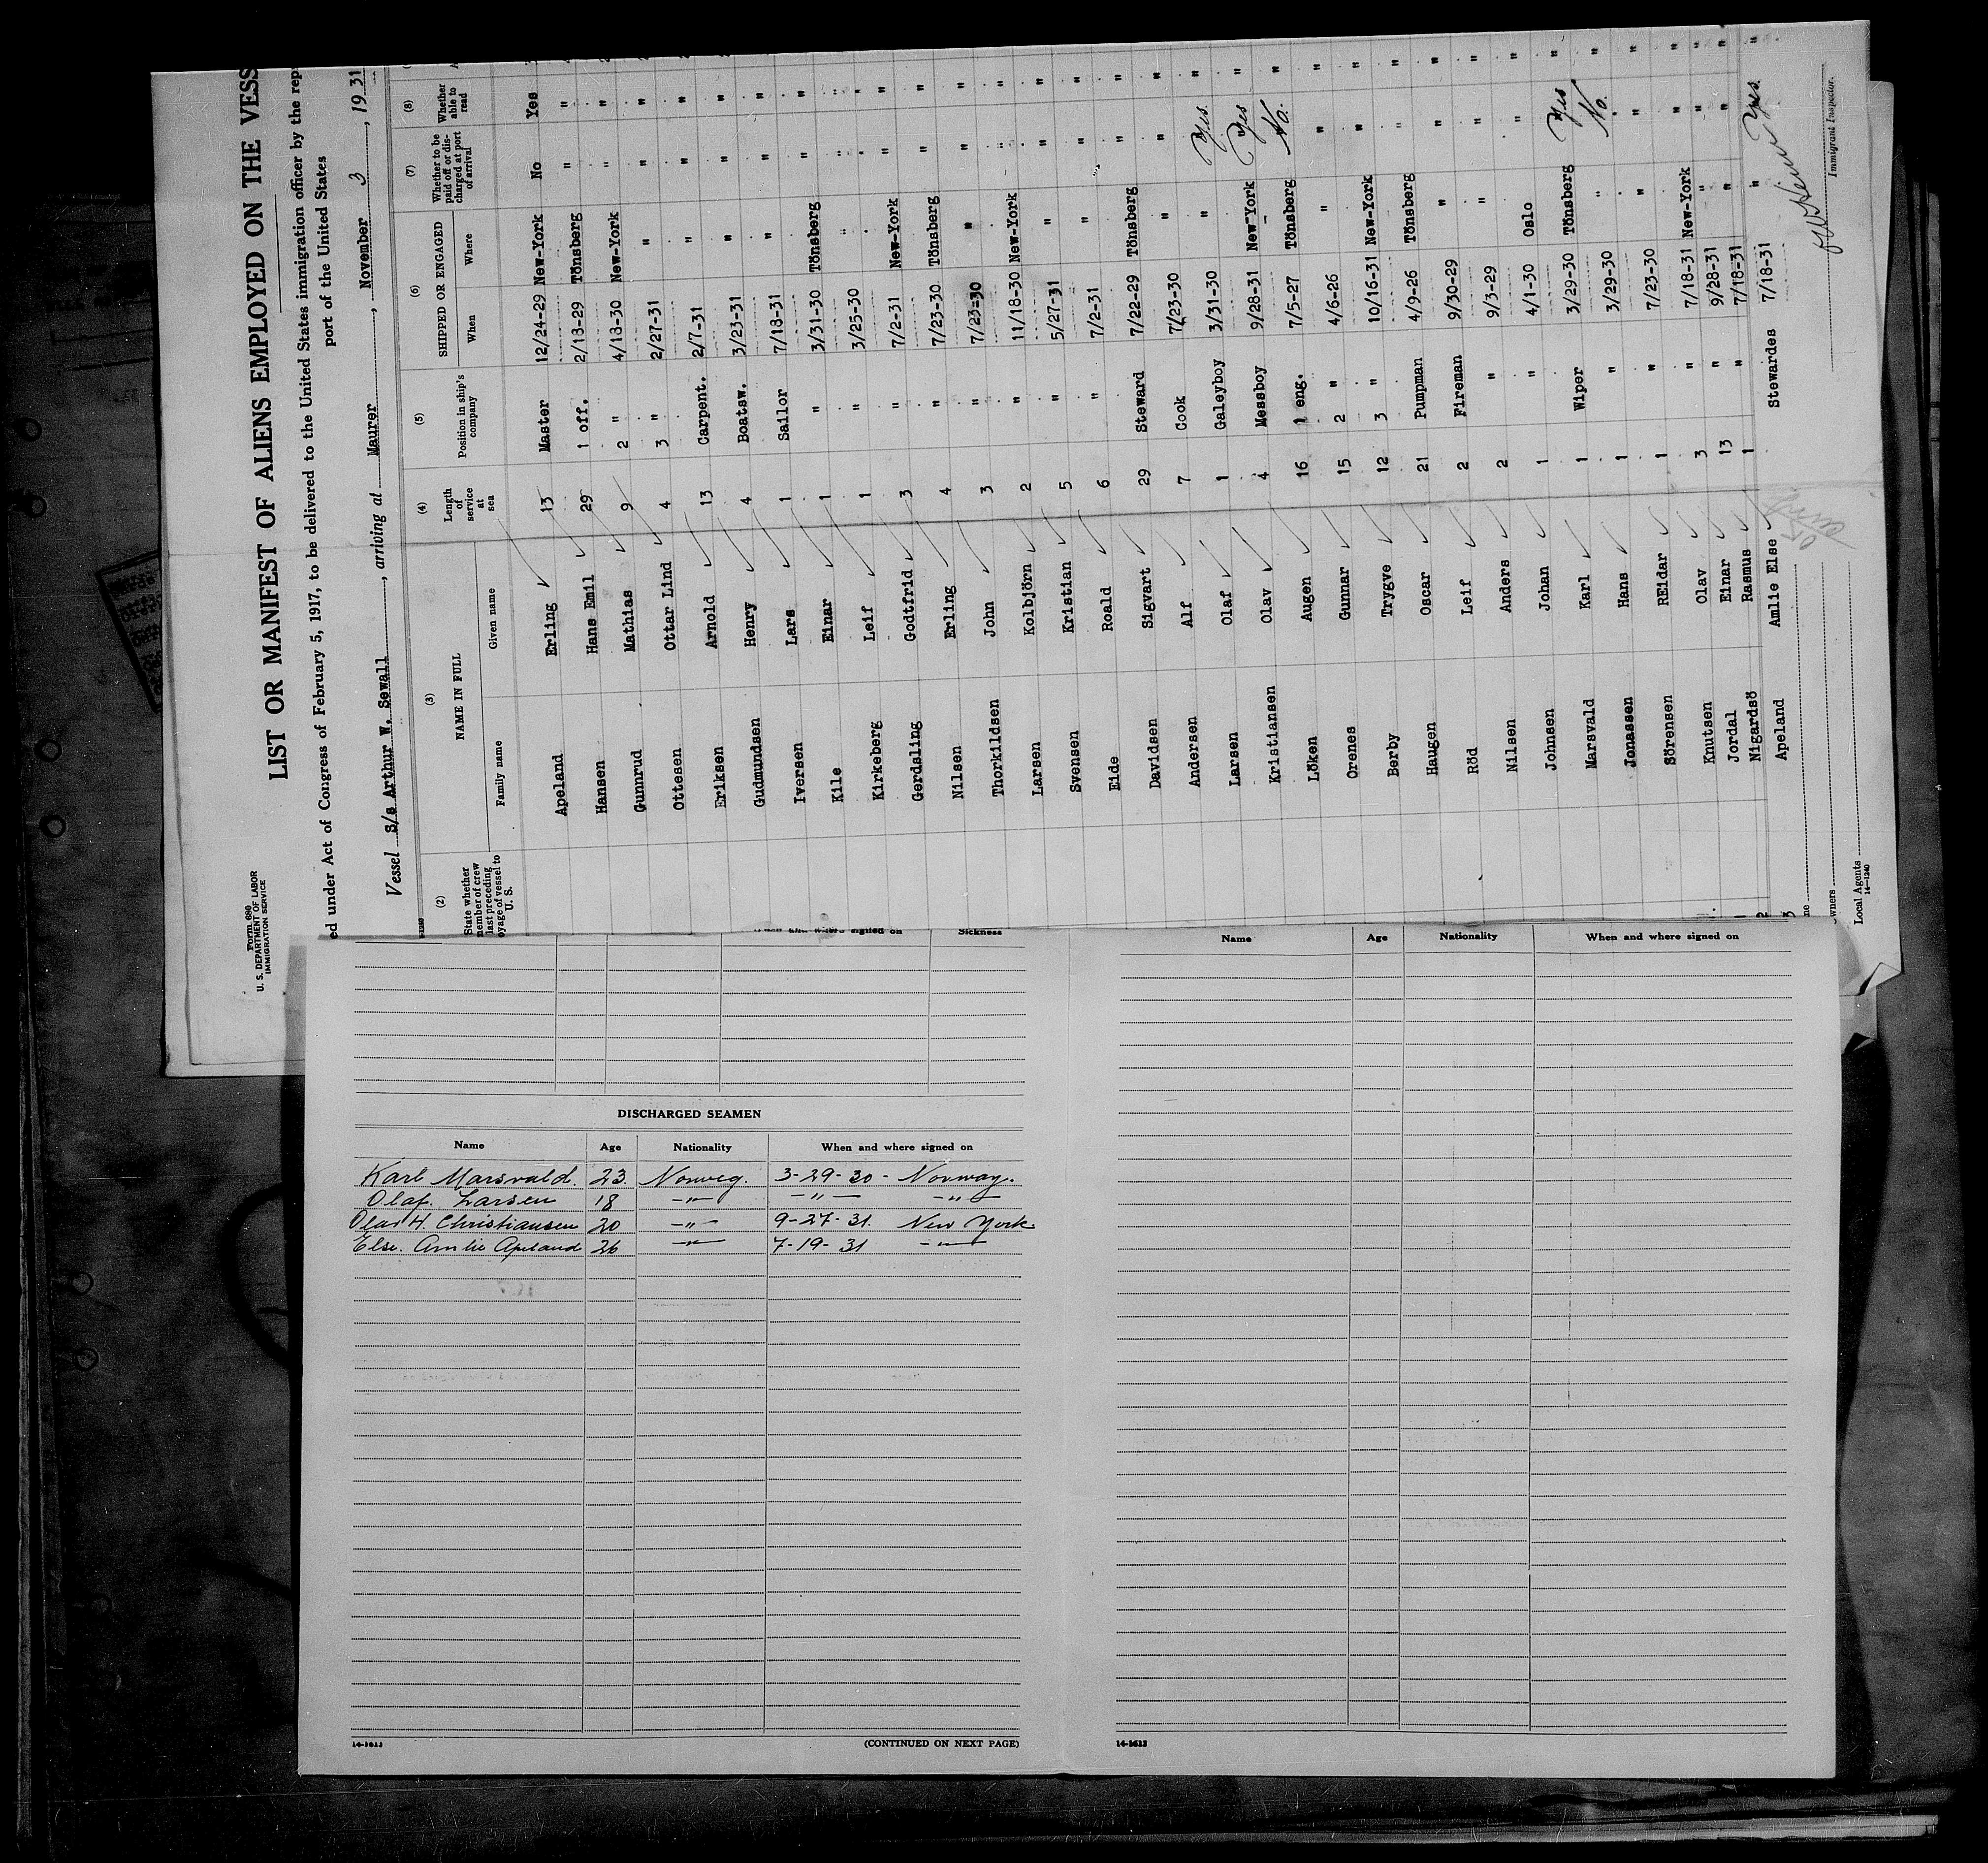 Form 680
U. S. DEPARTMENT OF LABOR
IMMIGRATION SERVICE
LIST OR MANIFEST OF ALIENS EMPLOYED ON THE VESS
ed under Act of Congress of February 5, 1917, to be delivered to the United States immigration officer by the rep
port of the United States
Vessel S/s Arthur W. Sewall, arriving at Maurer, November 3, 1931
(2) (3) (4) (5) (6) (7) (8)
State whether member of crew last preceding voyage of vessel to U. S. NAME IN FULL Length of service at sea Position in ship's company SHIPPED OR ENGAGED Whether to be paid off or discharged at port of arrival Whether able to read
Family name Given name When Where
Apeland Erling 13 Master 12/24-29 New-York No Yes
Hansen Hans Emil 29 1 off. 2/18-29 Tönsberg " "
Gunnrud Mathias 9 2 " 4/18-30 New-York " "
Ottesen Ottar Lind 4 3 " 2/27-31 " " "
Eriksen Arnold 13 Carpent. 2/7-31 " " "
Gudmundsen Henry 4 Boatsw. 3/23-31 " " "
Iversen Lars 1 Sailor 7/18-31 " " "
Kile Einar 1 " 3/31-30 Tönsberg " "
Kirkeberg Leif 1 " 3/25-30 " " "
Gerdsling Godtfrid 3 " 7/2-31 New-York " "
Nilsen Erling 4 " 7/23-30 Tönsberg " "
Thorkildsen John 3 " 7/23-30 " " "
Larsen Kolbjörn 2 " 11/18-30 New-York " "
Svensen Kristian 5 " 5/27-31 " " "
Eide Roald 6 " 7/2-31 " " "
Davidsen Sigvart 29 Steward 7/22-29 Tönsberg " "
Andersen Alf 7 Cook 7/23-30 " " "
Larsen Olaf 1 Galeyboy 3/31-30 " Yes. "
Kristiansen Olav 4 Messboy 9/28-31 New-York Yes "
Löken Augen 16 1 eng. 7/5-27 Tönsberg No. "
Orenes Gunnar 15 2 " 4/6-26 " " "
Berby Trygve 12 3 " 10/16-31 New-York " "
Haugen Oscar 21 Pumpman 4/9-26 Tönsberg " "
Röd Leif 2 Fireman 9/30-29 " " "
Nilsen Anders 2 " 9/3-29 " " "
Johnsen Johan 1 " 4/1-30 Oslo " "
Marsvald Karl 1 Wiper 3/29-30 Tönsberg Yes "
Jonassen Hans 1 " 3/29-30 " No. "
Sörensen REidar 1 " 7/23-30 " " "
Knutsen Olav 3 " 7/18-31 New-York " "
Jordal Einar 13 " 9/28-31 " " "
Nigardsö Rasmus 1 " 7/18-31 " " "
Apeland Amlie Else Stewardes 7/18-31 " Yes. "
Immigrant Inspector.
wners
Local Agents
14-1240
When and where signed on Sickness
DISCHARGED SEAMEN
Name Age Nationality When and where signed on
Karl Marsvald. 23. Norweg. 3-29-30 - Norway.
Olaf. Larsen 18 -"- -"- -"-
Olav H. Christiansen 20 -"- 9-27-31. New York.
Else. Amlie Apeland 26 -"- 7-19-31 -"-
14-1613
(CONTINUED ON NEXT PAGE)
Name Age Nationality When and where signed on
14-1613